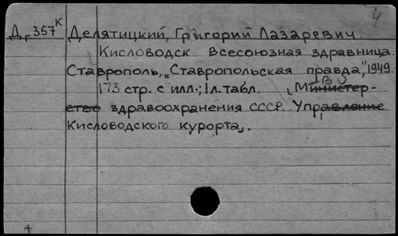 4
Д, 357К Делятицкий, Григорий Лазаревич
Кисловодск всесоюзная здравница.
Ставрополь, "Ставропольская правда", 1949.
173 стр. с илл.; 1 л. табл. (Министер-
ство здравоохранения СССР. Управление
Кисловодского курорта).